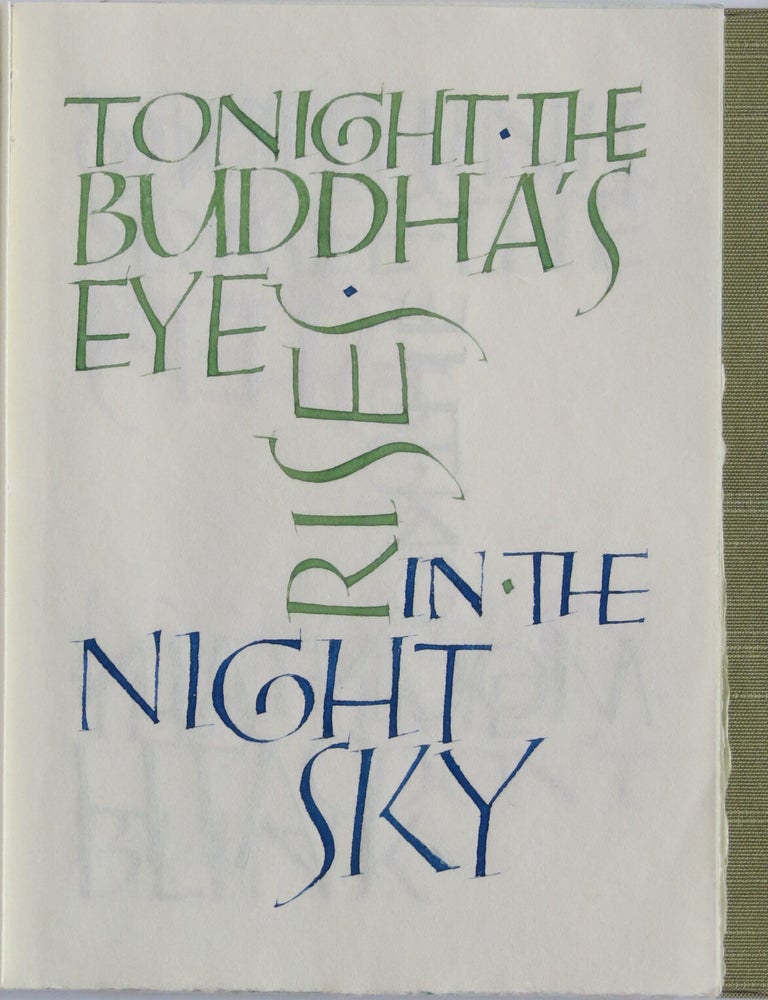 TONIGHT·THE
BUDDHA'S
EYE·
RISES
IN·THE
NIGHT
SKY